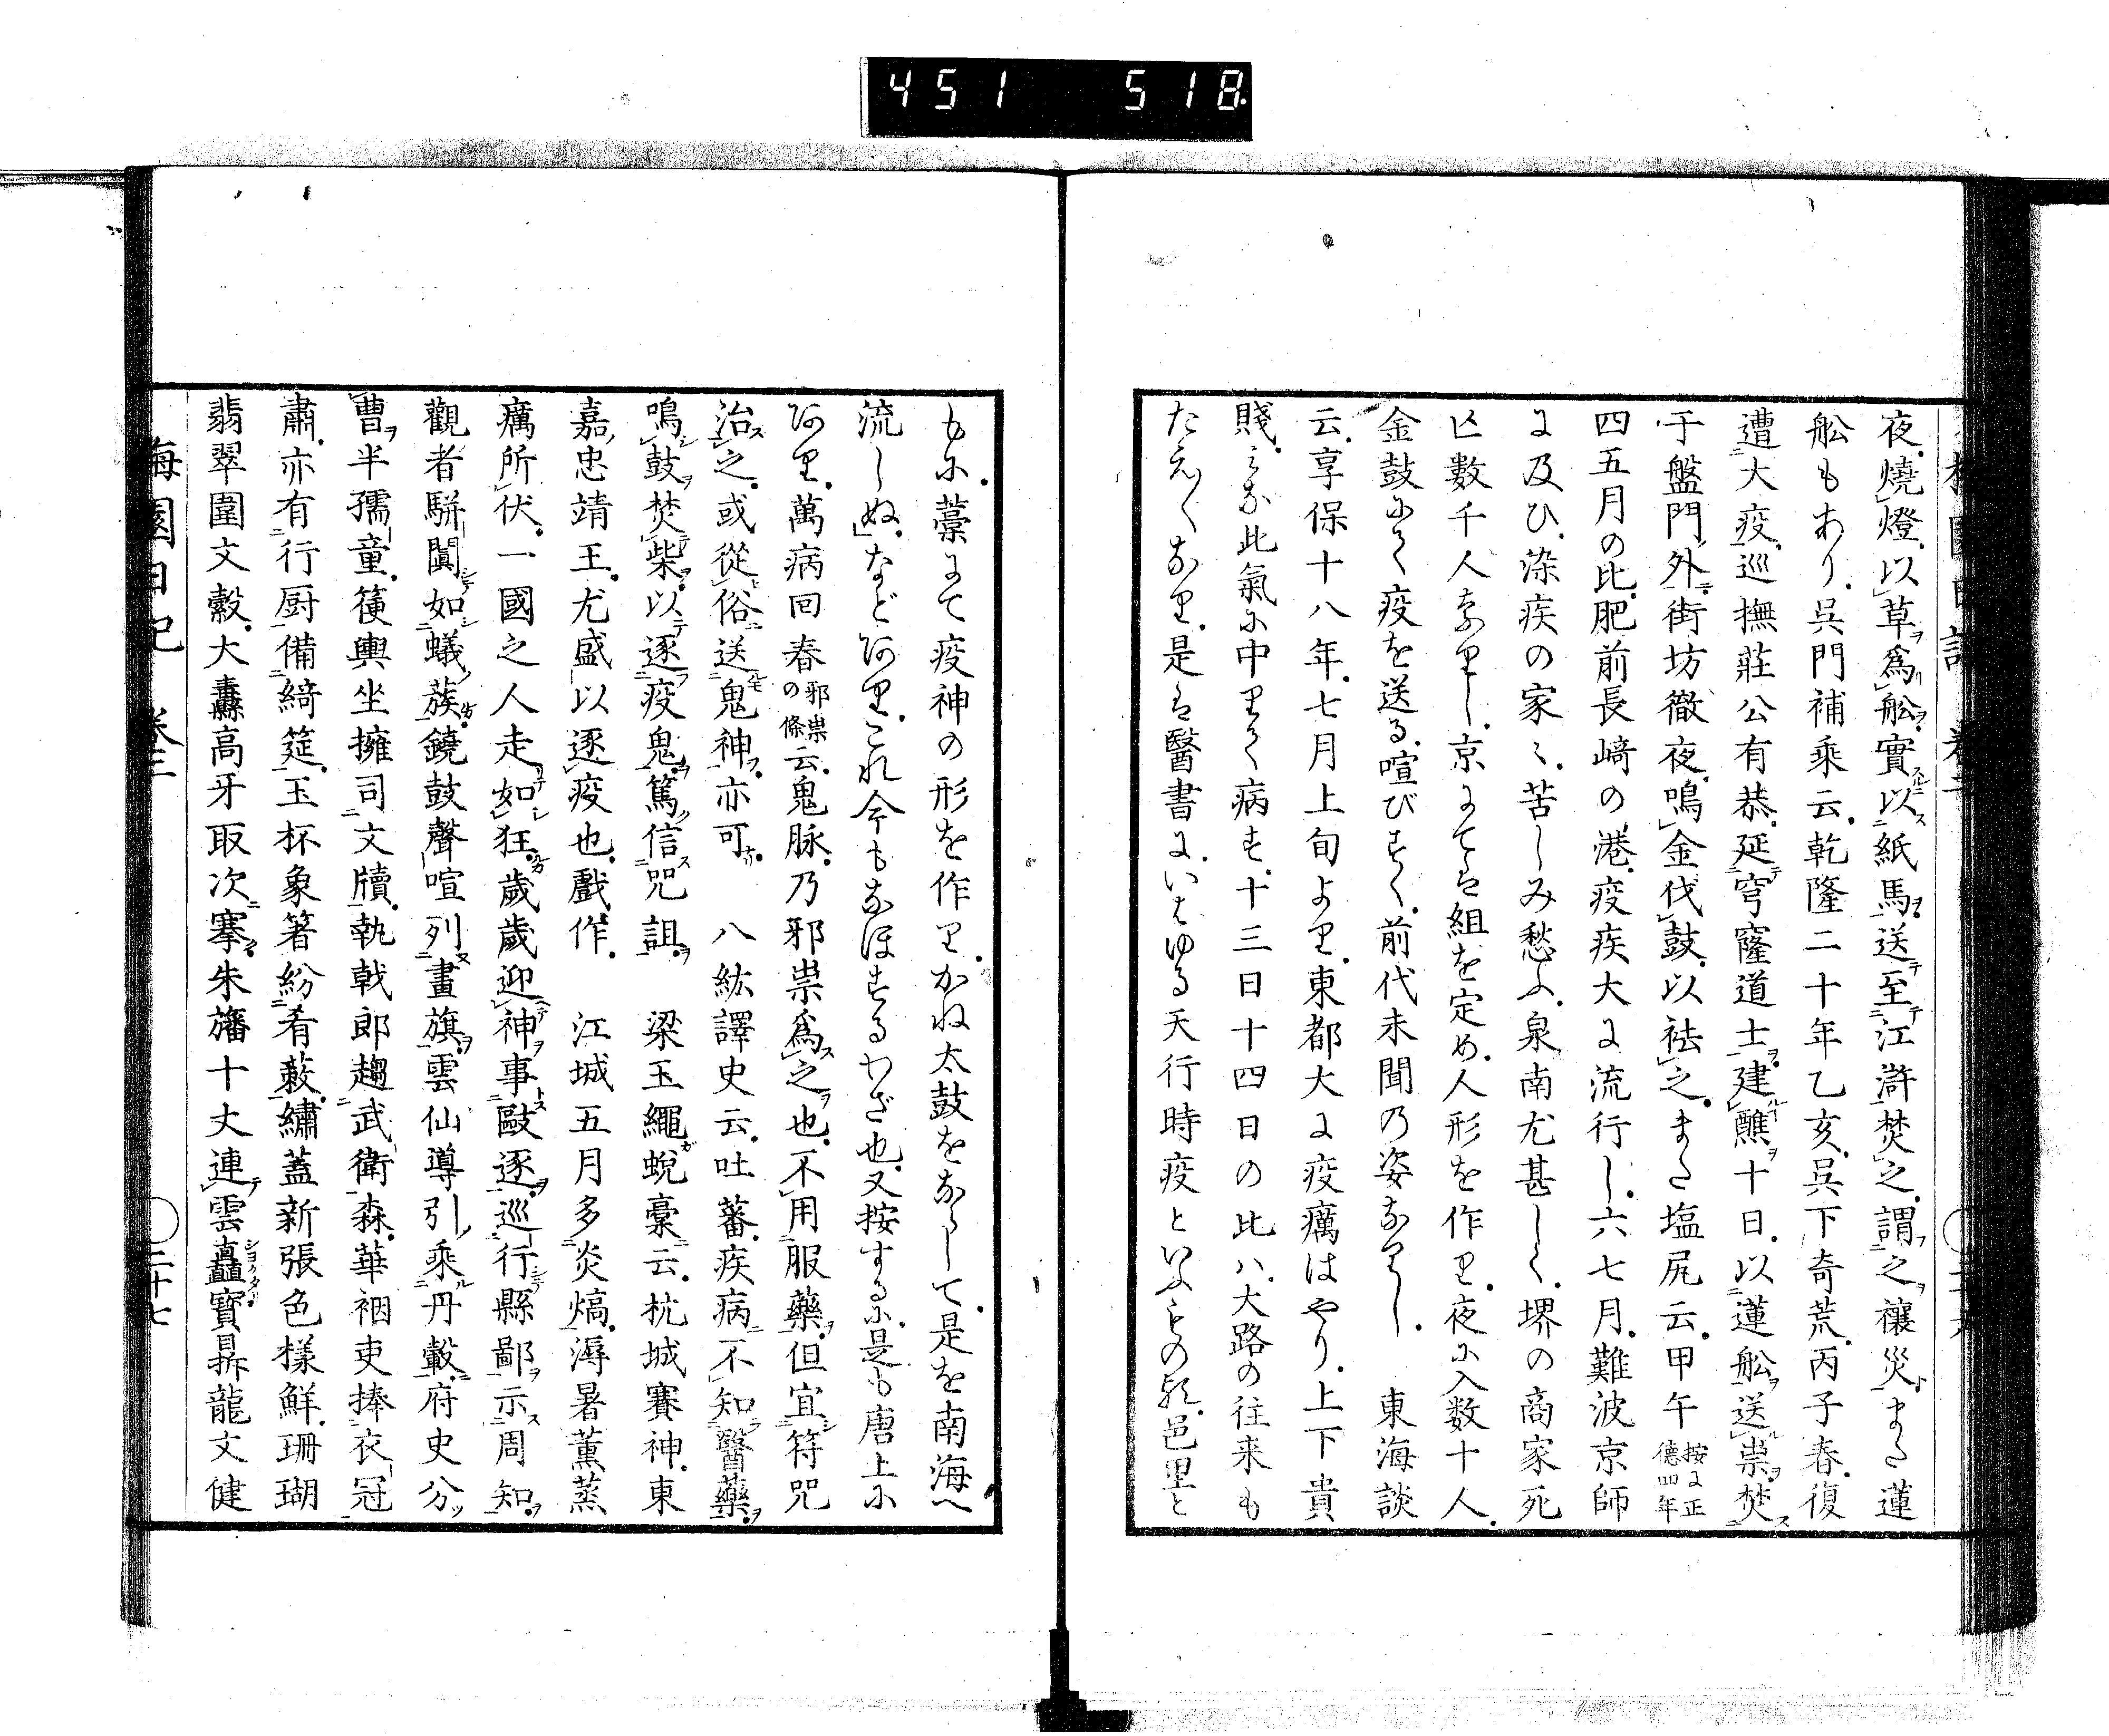 451 518
夜燒燈以草為舩實以紙馬送至江滸焚之謂之禳災また蓮
舩もあり呉門補乗云乾隆二十年乙亥呉下奇荒丙子春復
遭大疫巡撫莊公有恭延穹窿道士建醮十日以蓮舩送祟焚
于盤門外街坊徹夜鳴金伐鼓以祛之また塩尻云甲午按に正德四年
四五月の比肥前長﨑の港疫疾大に流行し六七月難波京師
に及ひ染疾の家〻苦しみ愁ふ泉南尤甚しく堺の商家死
亡數千人なりし京にては組を定め人形を作り夜に入数十人
金鼓にて疫を送る喧びすく前代未聞の姿なりし　東海談
云享保十八年七月上旬より東都大に疫癘はやり上下貴
賤みな此氣に中りて病む十三日十四日の比ハ大路の往来も
たえ〳〵なり是は醫書にいはゆる天行時疫といふもの歟邑里と
もに藁にて疫神の形を作りかね太鼓をならして是を南海へ
流しぬなどあり これ今もなほするわざ也又按するに是も唐土に
あり萬病回春邪祟の條云鬼脉乃邪祟為之也不用服藥但宜符咒
治之或從俗送鬼神亦可　八紘譯史云吐蕃疾病不知醫藥
鳴鼓焚柴以逐疫鬼篤信咒詛　梁玉繩蛻稾云杭城賽神東
嘉忠靖王尤盛以逐疫也戲作　江城五月多炎熇溽暑薰蒸
癘所伏一國之人走如狂歲歲迎神事敺逐巡行縣鄙示周知
觀者駢闐如蟻蔟鐃鼓聲喧列畫旗雲仙導引乘丹轂府史分
曹半孺童篋輿坐擁司文牘執戟郎趨武衛森華裀吏捧衣冠
肅亦有行厨備綺筵玉杯象箸紛肴蔌繡蓋新張色樣鮮珊瑚
翡翠圍文縠大纛高牙取次搴朱旛十丈連雲矗寶鼎龍文健
梅園日記 卷二 ○二十七